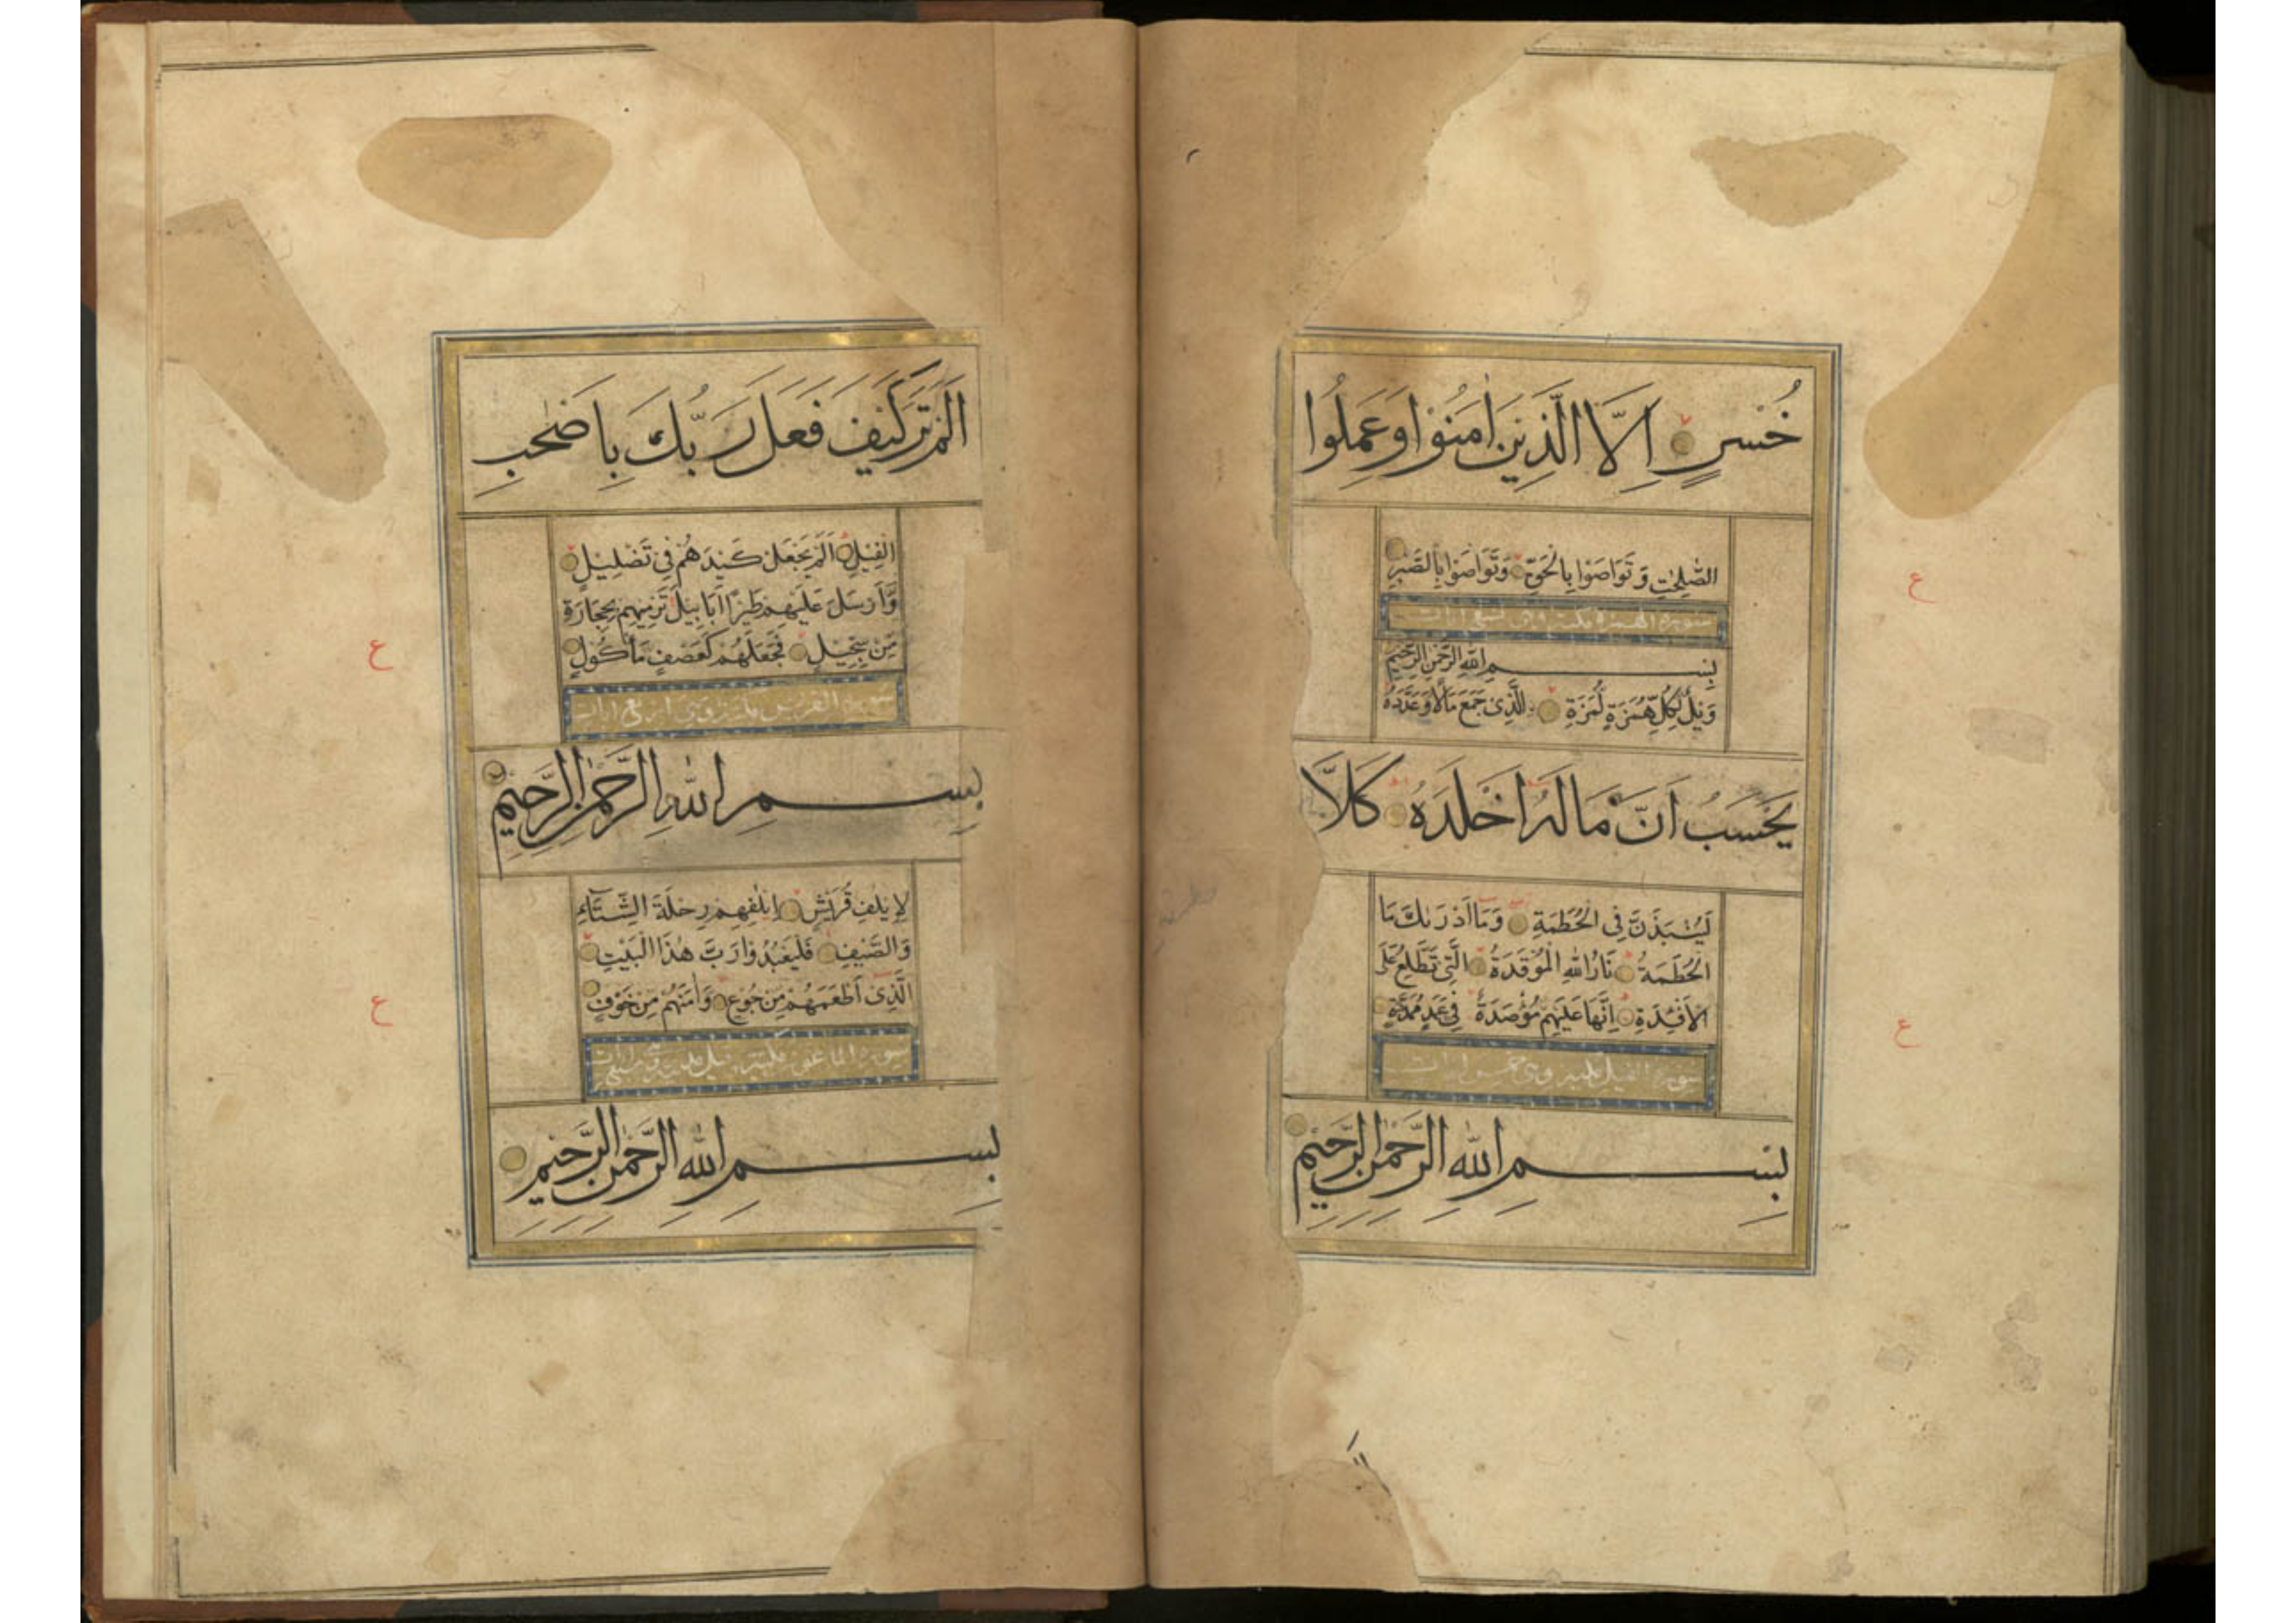 خُسْرٍ اِلَّا الَّذِيْنَ اٰمَنُوْا وَعَمِلُوا
الصّٰلِحٰتِ وَتَوَاصَوْا بِالْحَقِّ وَتَوَاصَوْا بِالصَّبْرِ
سورة الهمزة مكية وهى تسع ايات
بِسْمِ اللهِ الرَّحْمٰنِ الرَّحِيْمِ
وَيْلٌ لِّكُلِّ هُمَزَةٍ لُّمَزَةٍ الَّذِىْ جَمَعَ مَالًا وَعَدَّدَهُ
يَحْسَبُ اَنَّ مَالَهُ اَخْلَدَهُ كَلَّا
لَيُنْبَذَنَّ فِى الْحُطَمَةِ وَمَا اَدْرٰىكَ مَا
الْحُطَمَةُ نَارُ اللهِ الْمُوْقَدَةُ الَّتِىْ تَطَّلِعُ عَلَى
الْاَفْئِدَةِ اِنَّهَا عَلَيْهِمْ مُؤْصَدَةٌ فِىْ عَمَدٍ مُمَدَّدَةٍ
سورة الفيل مكية وهى خمس ايات
بِسْمِ اللهِ الرَّحْمٰنِ الرَّحِيْمِ
اَلَمْ تَرَ كَيْفَ فَعَلَ رَبُّكَ بِاَصْحٰبِ
الْفِيْلِ اَلَمْ يَجْعَلْ كَيْدَهُمْ فِىْ تَضْلِيْلٍ
وَّاَرْسَلَ عَلَيْهِمْ طَيْرًا اَبَابِيْلَ تَرْمِيْهِمْ بِحِجَارَةٍ
مِّنْ سِجِّيْلٍ فَجَعَلَهُمْ كَعَصْفٍ مَّأْكُوْلٍ
سورة القريش مكية وهى اربع ايات
بِسْمِ اللهِ الرَّحْمٰنِ الرَّحِيْمِ
لِاِيْلٰفِ قُرَيْشٍ اِيْلٰفِهِمْ رِحْلَةَ الشِّتَآءِ
وَالصَّيْفِ فَلْيَعْبُدُوْا رَبَّ هٰذَا الْبَيْتِ
الَّذِىْ اَطْعَمَهُمْ مِّنْ جُوْعٍ وَاٰمَنَهُمْ مِّنْ خَوْفٍ
سورة الماعون مكية
بِسْمِ اللهِ الرَّحْمٰنِ الرَّحِيْمِ
ع
ع
ع
ع